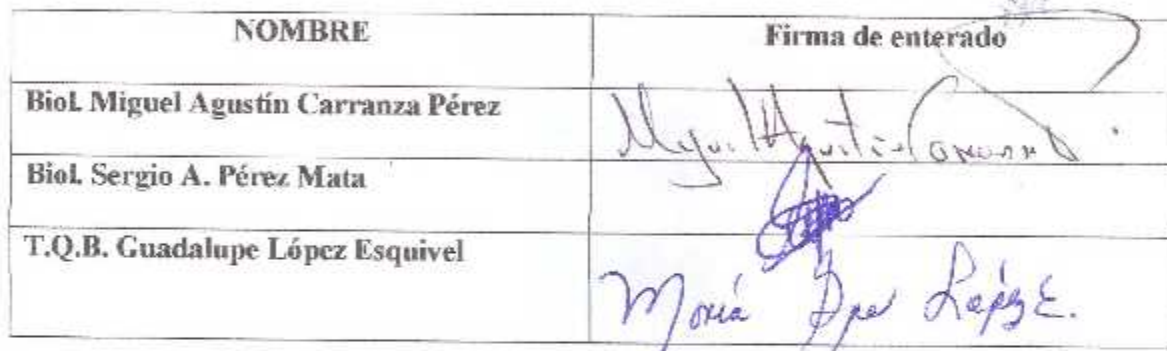 NOMBRE Firma de enterado
Biol. Miguel Agustín Carranza Pérez Miguel Agustin Carranza
Biol. Sergio A. Pérez Mata
T.Q.B. Guadalupe López Esquivel María Gpe López E.